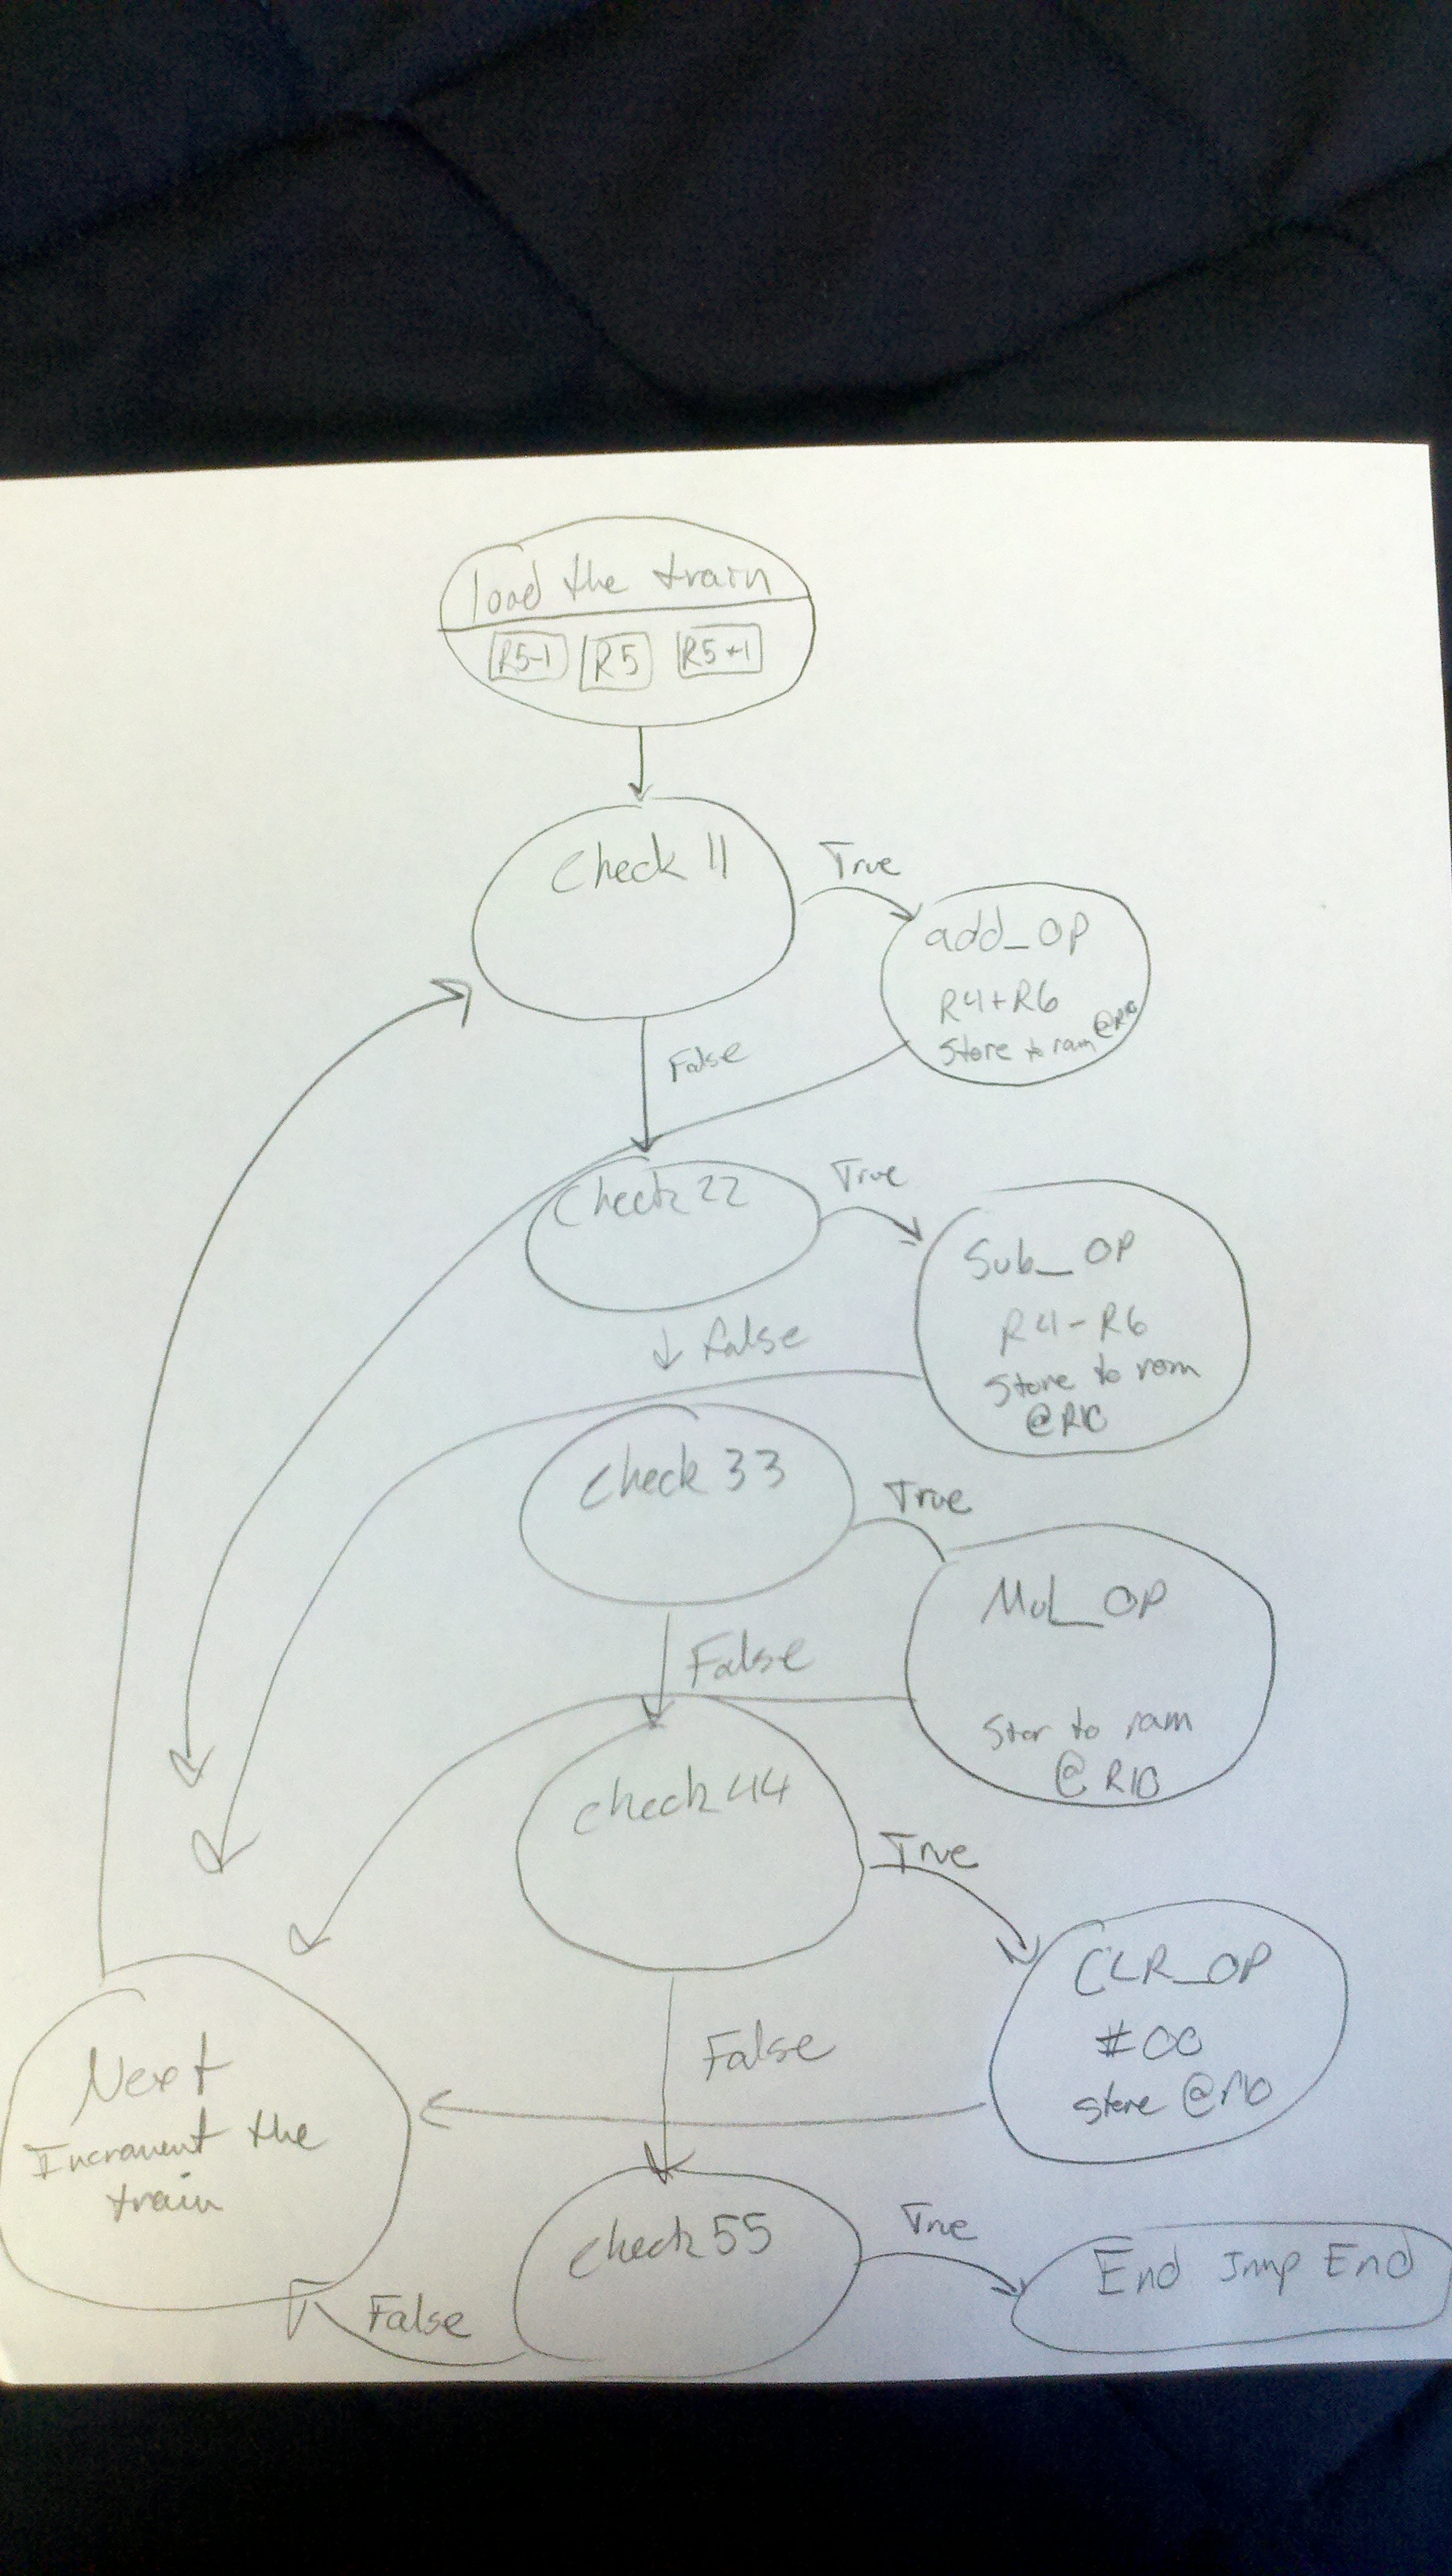 load the train
R5-1 R5 R5+1
Check 11
True
add_OP
R4+R6
Store to ram @R10
False
Check 22
True
Sub_OP
R4-R6
Store to ram
@R10
False
Check 33
True
Mul_OP
Stor to ram
@R10
False
Check 44
True
CLR_OP
#00
store @r10
False
Next
Increment the
train
Check 55
True
End Jmp End
False